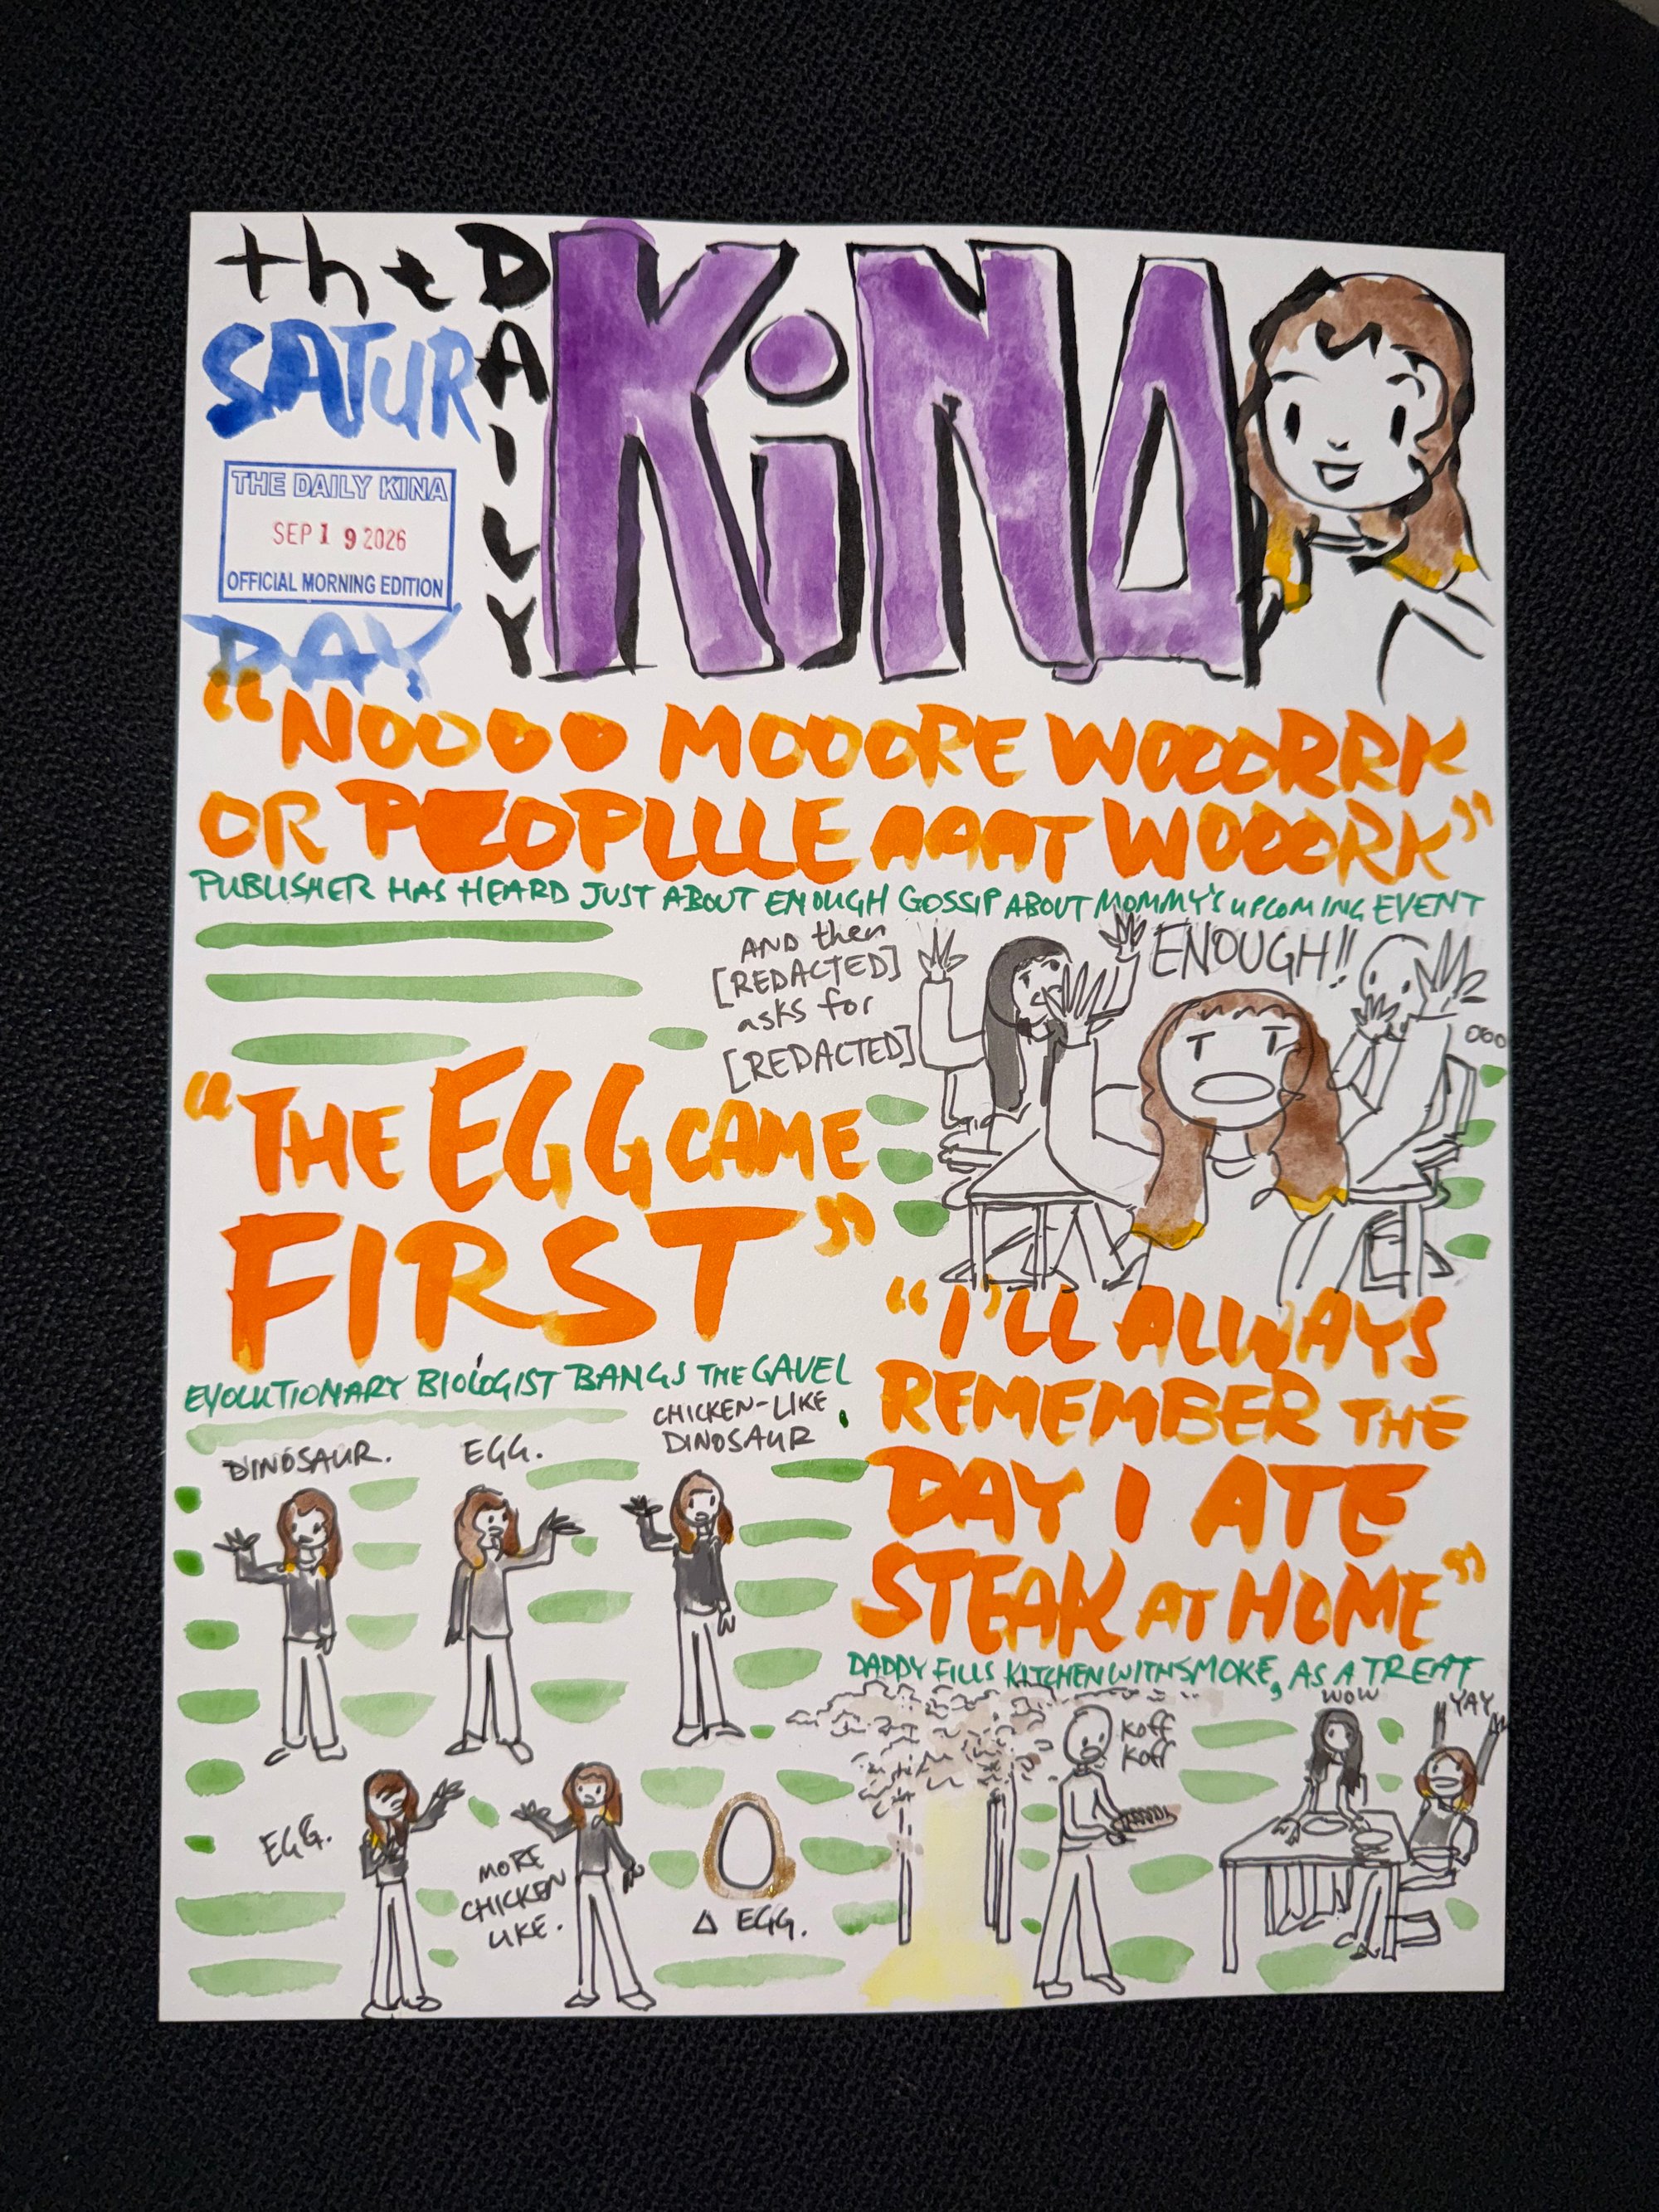 the DAILY KiNA
SATUR
THE DAILY KINA
SEP 19 2026
OFFICIAL MORNING EDITION
DAY
"NOOOO MOOORE WOOORRK
OR PEOPLLLE AAAT WOOORK"
PUBLISHER HAS HEARD JUST ABOUT ENOUGH GOSSIP ABOUT MOMMY'S UPCOMING EVENT
AND then
[REDACTED]
asks for
[REDACTED]
ENOUGH!!
ooo
"THE EGG CAME
FIRST"
EVOLUTIONARY BIOLOGIST BANGS THE GAVEL
DINOSAUR.
EGG.
CHICKEN-LIKE
DINOSAUR
EGG.
MORE
CHICKEN
LIKE.
Δ EGG.
"I'LL ALWAYS
REMEMBER THE
DAY I ATE
STEAK AT HOME"
DADDY FILLS KITCHEN WITH SMOKE, AS A TREAT
KOFF
KOFF
WOW
YAY